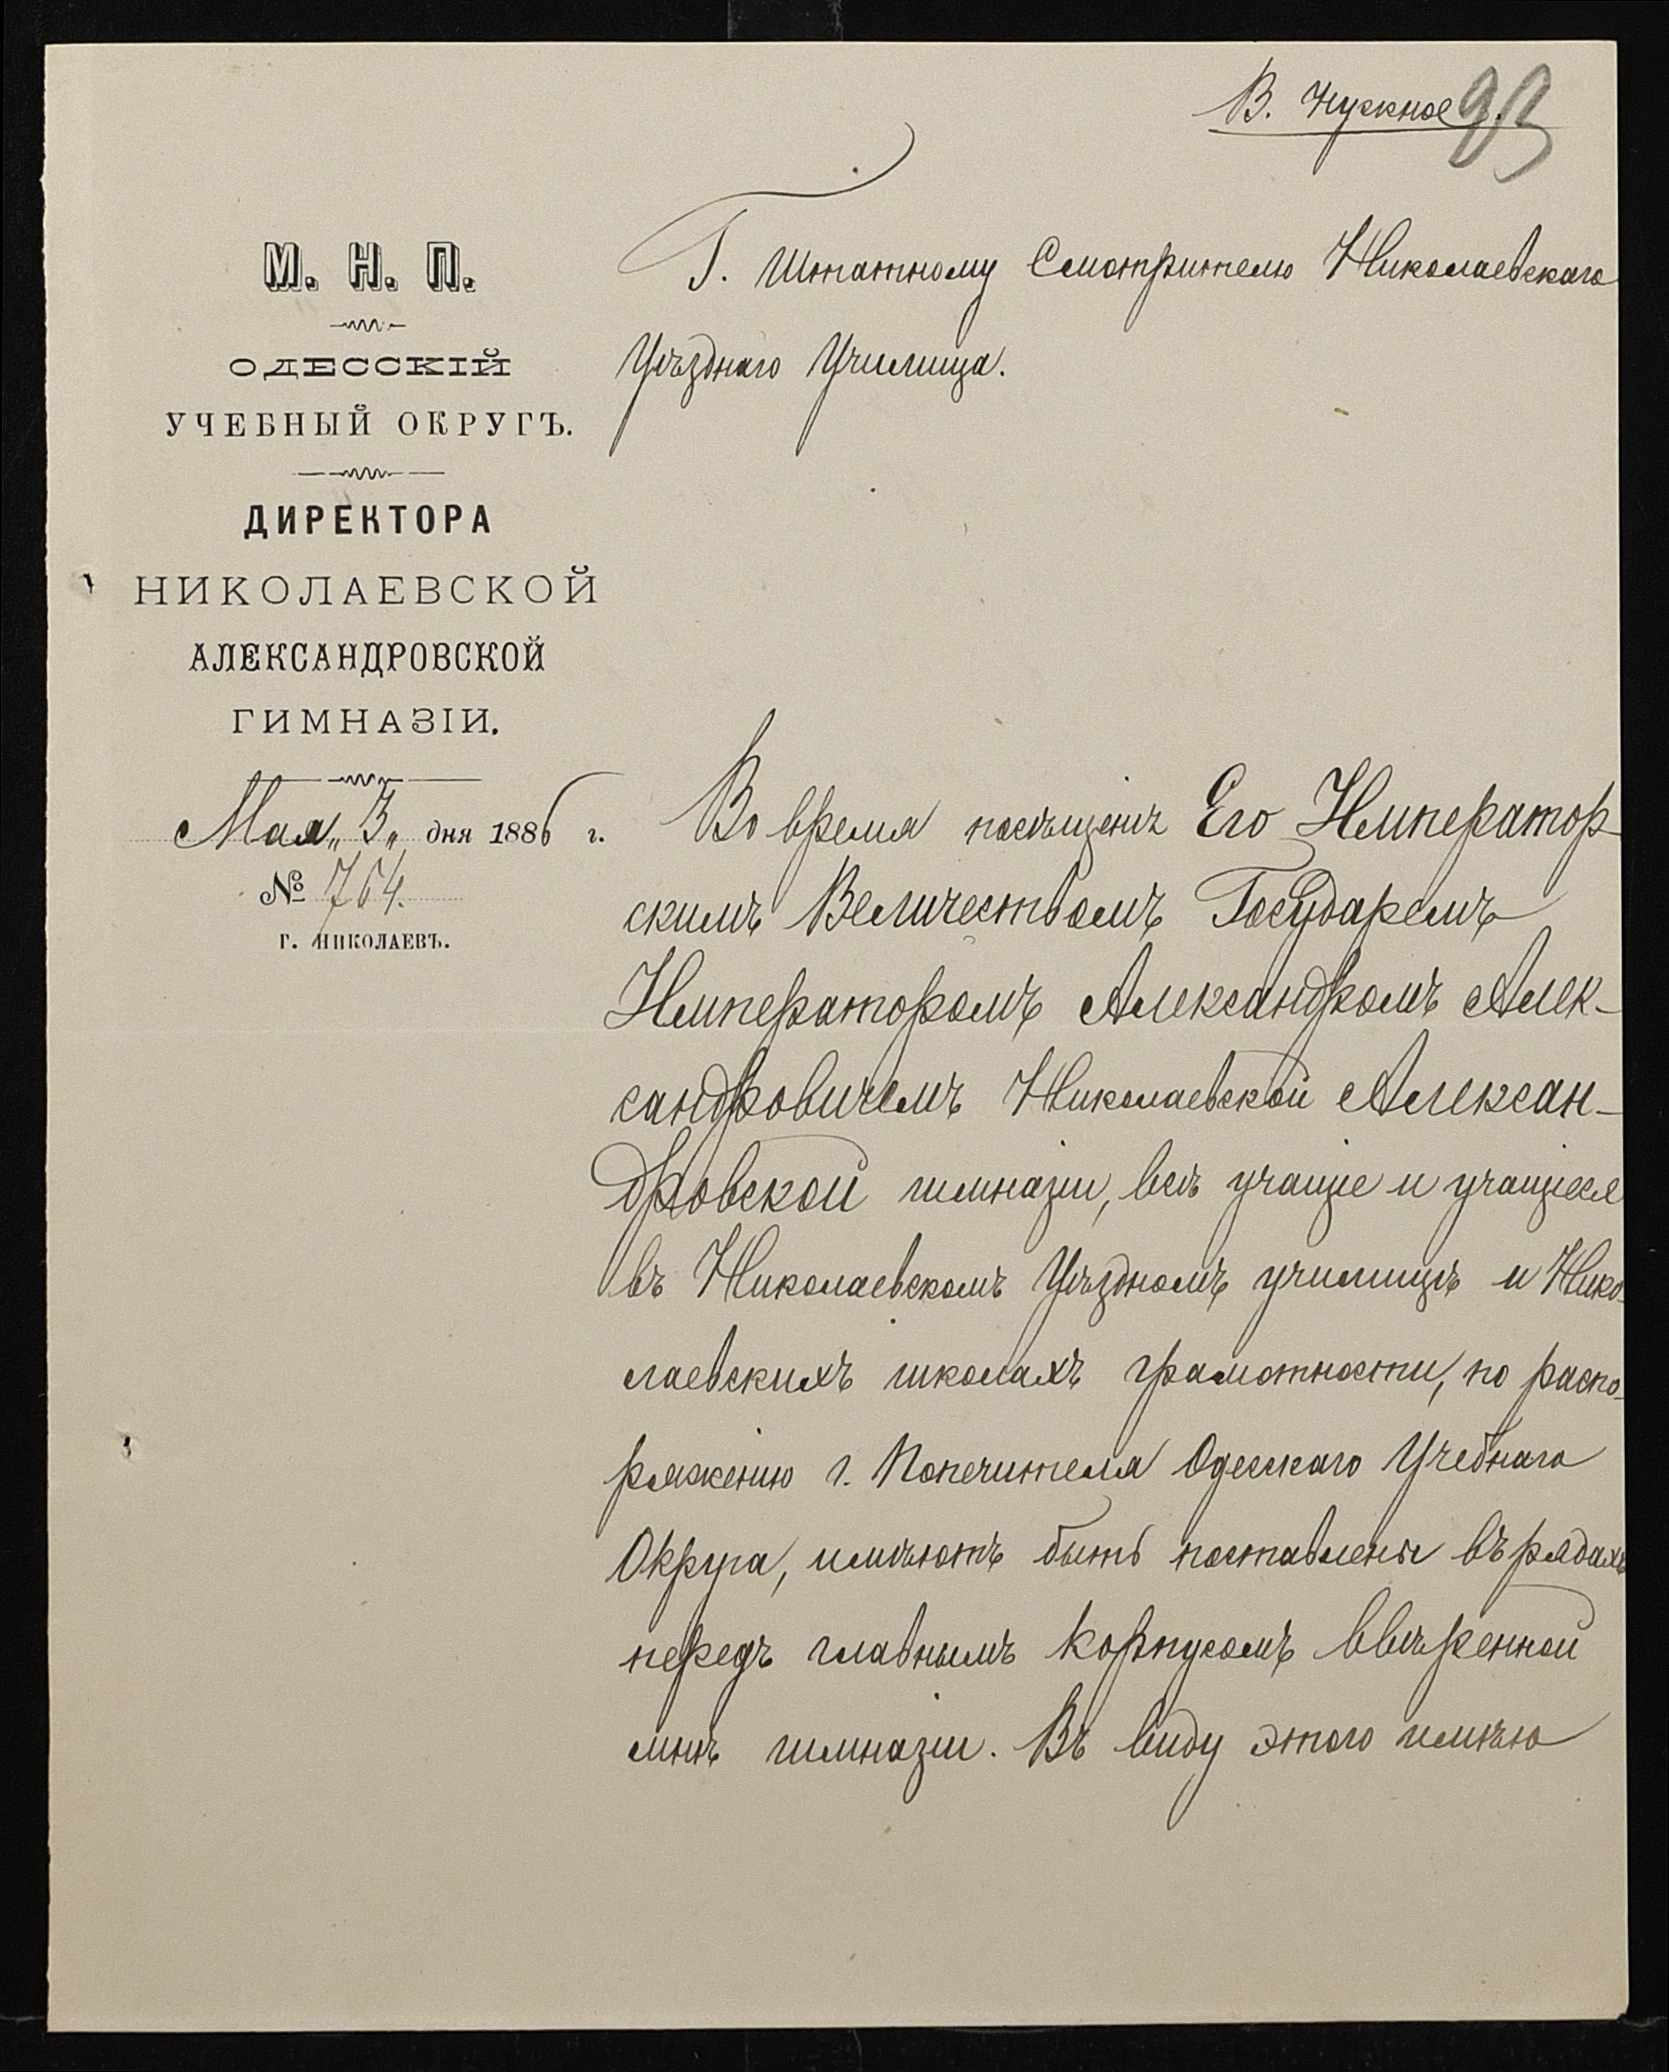 В. Нужное.
93
М. Н. П.
ОДЕССКІЙ
УЧЕБНЫЙ ОКРУГЪ.
ДИРЕКТОРА
НИКОЛАЕВСКОЙ
АЛЕКСАНДРОВСКОЙ
ГИМНАЗІИ.
Мая „3„ дня 1886 г.
№ 764.
Г. НИКОЛАЕВЪ.
Г. Штатному Смотрителю Николаевскаго
Уѣзднаго Училища.
Во время посѣщенія Его Император-
скимъ Величествомъ Государемъ
Императоромъ Александромъ Алек-
сандровичемъ Николаевской Алексан-
дровской гимназіи, всѣ учащіе и учащіеся
въ Николаевскомъ Уѣздномъ училищѣ и Нико-
лаевскихъ школахъ грамотности, по распо-
ряженію г. Попечителя Одесскаго Учебнаго
Округа, имѣютъ быть поставлены въ рядахъ
передъ главнымъ корпусомъ ввѣренной
мнѣ гимназіи. Въ виду этого имѣю